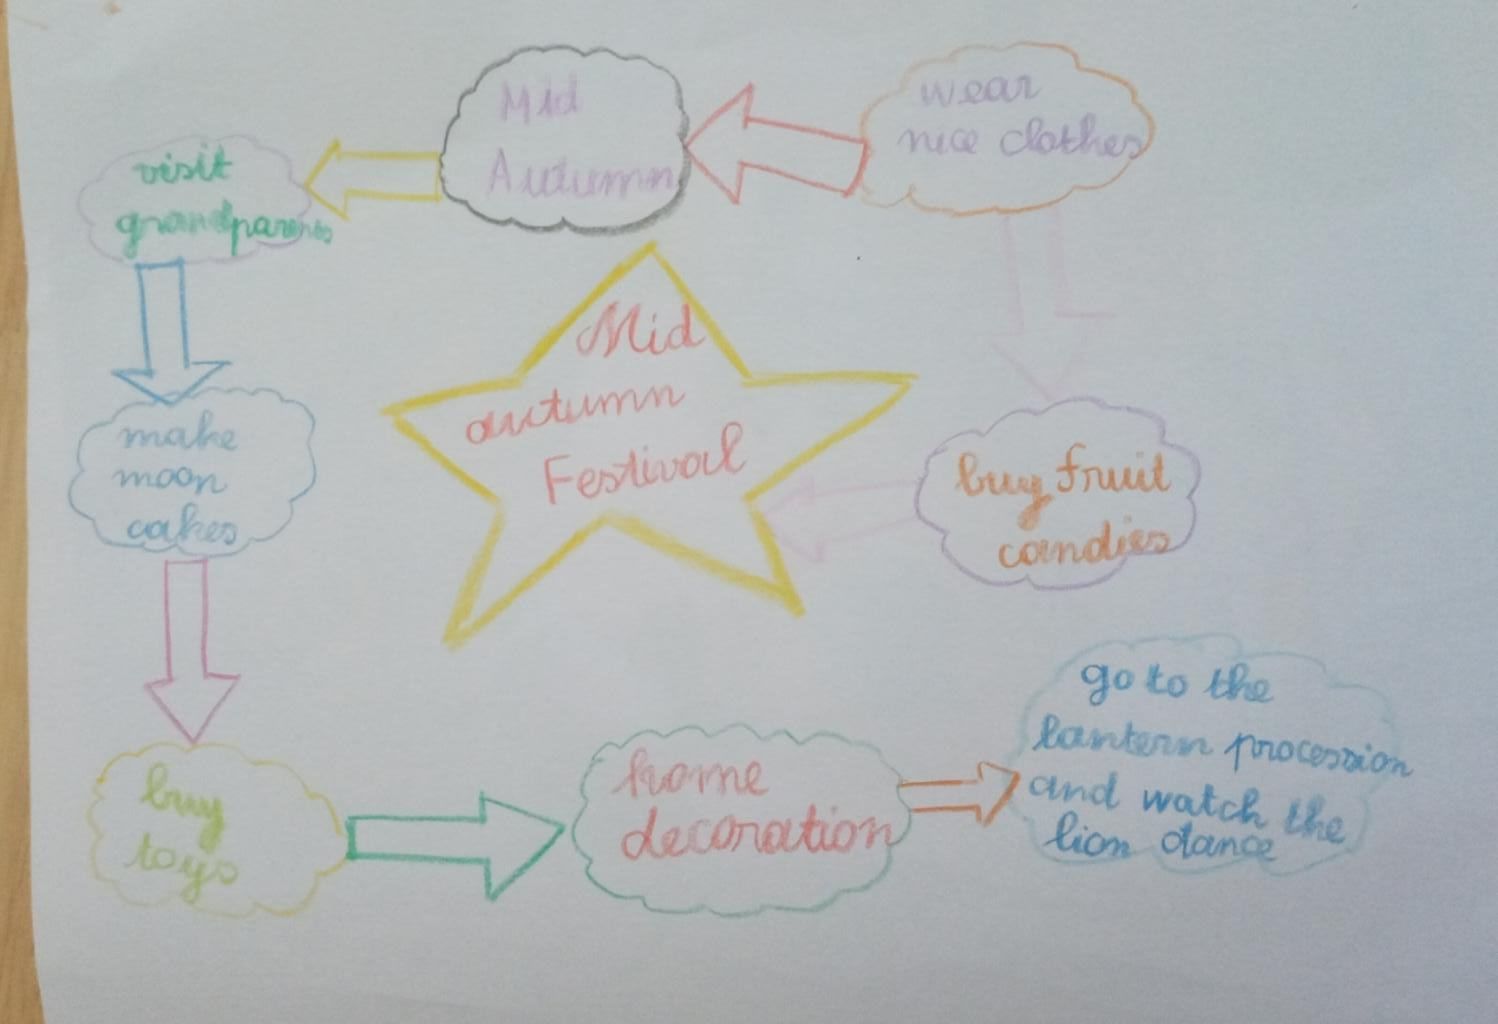 Mid
Autumn
wear
nice clothes
visit
grandparents
Mid
autumn
Festival
make
moon
cakes
buy fruit
candies
go to the
lantern procession
and watch the
lion dance
buy
toys
home
decoration